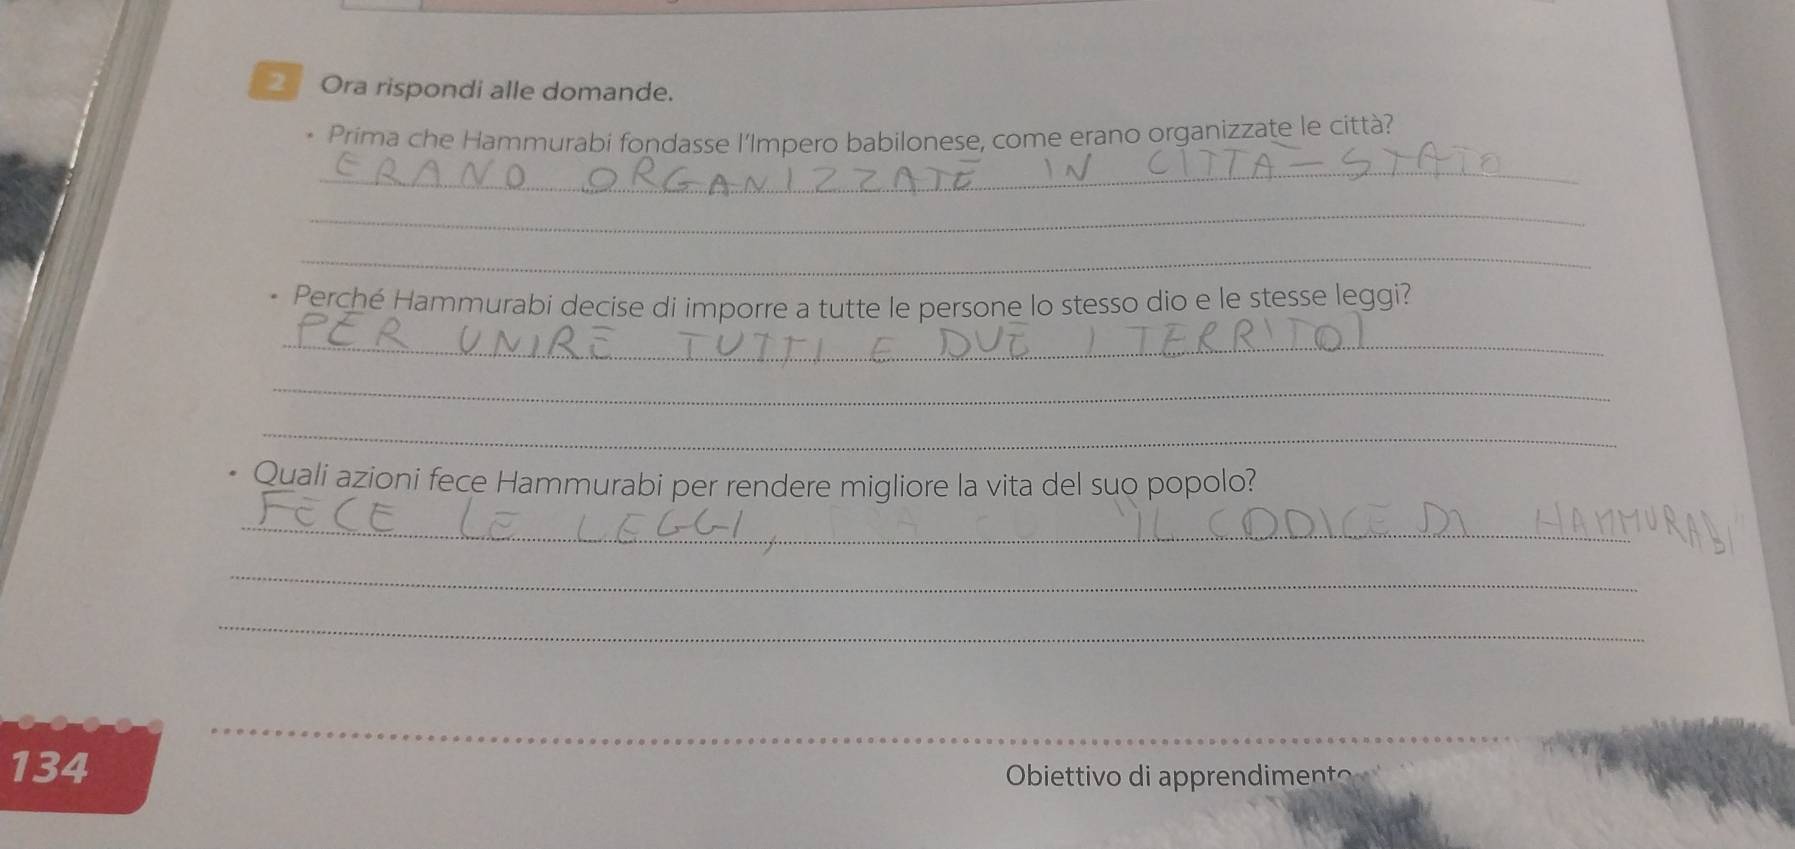 2 Ora rispondi alle domande.
• Prima che Hammurabi fondasse l'Impero babilonese, come erano organizzate le città?
ERANO ORGANIZZATE IN CITTÀ-STATO
• Perché Hammurabi decise di imporre a tutte le persone lo stesso dio e le stesse leggi?
PER UNIRE TUTTI E DUE I TERRITOI
• Quali azioni fece Hammurabi per rendere migliore la vita del suo popolo?
FECE LE LEGGI, "IL CODICE DI HAMMURABI"
134
Obiettivo di apprendimento